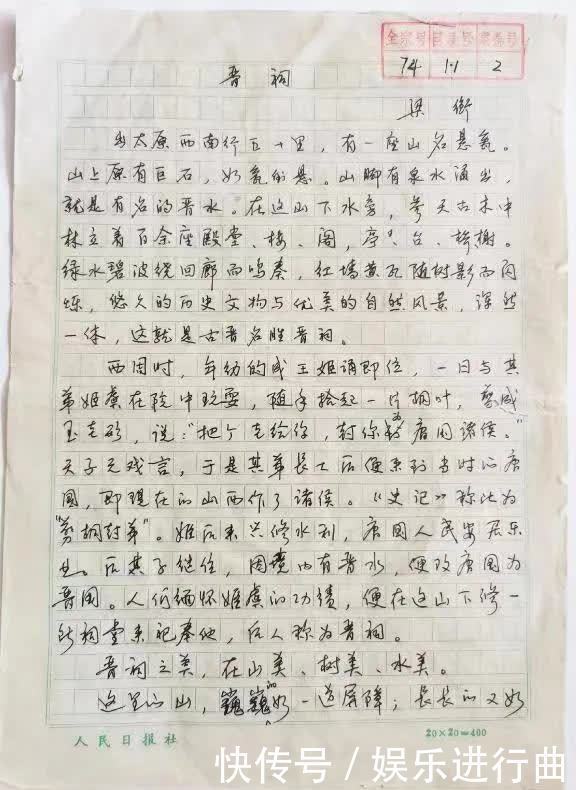 全宗号 目录号 案卷号
74 1·1 2
晋祠
梁衡
出太原西南行五十里，有一座山名悬瓮。
山上原有巨石，如瓮倒悬。山脚有泉水涌出，
就是有名的晋水。在这山下水旁，参天古木中
林立着百余座殿堂、楼、阁，亭、台、桥榭。
绿水碧波绕回廊而鸣奏，红墙黄瓦随树影而闪
烁，悠久的历史文物与优美的自然风景，浑然
一体，这就是古晋名胜晋祠。
西周时，年幼的成王姬诵即位，一日与其
弟姬虞在院中玩耍，随手拾起一片桐叶，剪成
玉圭形，说："把个圭给你，封你为唐国诸侯。"
天子无戏言，于是其弟长大后便来到当时的唐
国，即现在的山西作了诸侯。《史记》称此为
"剪桐封弟"。姬后来兴修水利，唐国人民安居乐
业。后其子继位，因境内有晋水，便改唐国为
晋国。人们缅怀姬虞的功绩，便在这山下修一
所祠堂来祀奉他，后人称为晋祠。
晋祠之美，在山美、树美、水美。
这里的山，巍巍的如一道屏障；长长的又如
人民日报社
20×20=400
快传号/娱乐进行曲